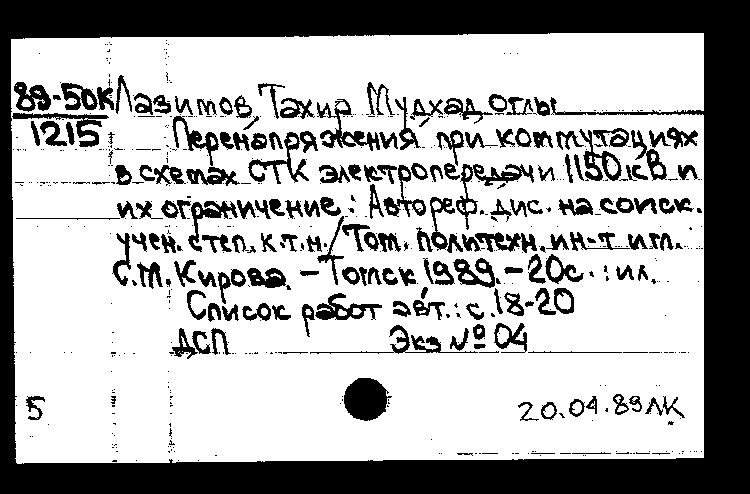 89-50К Лазимов, Тахир Мудхад оглы
1215 Перенапряжения при коммутациях
в схемах СТК электропередачи 1150 кВ и
их ограничение: Автореф. дис. на соиск.
учен. степ. к.т.н./Том. политехн. ин-т им.
С.М. Кирова. - Томск, 1989. - 20с. : ил.
Список работ авт.: с.18-20
ДСП Экз № 04
5 20.04.89ЛК